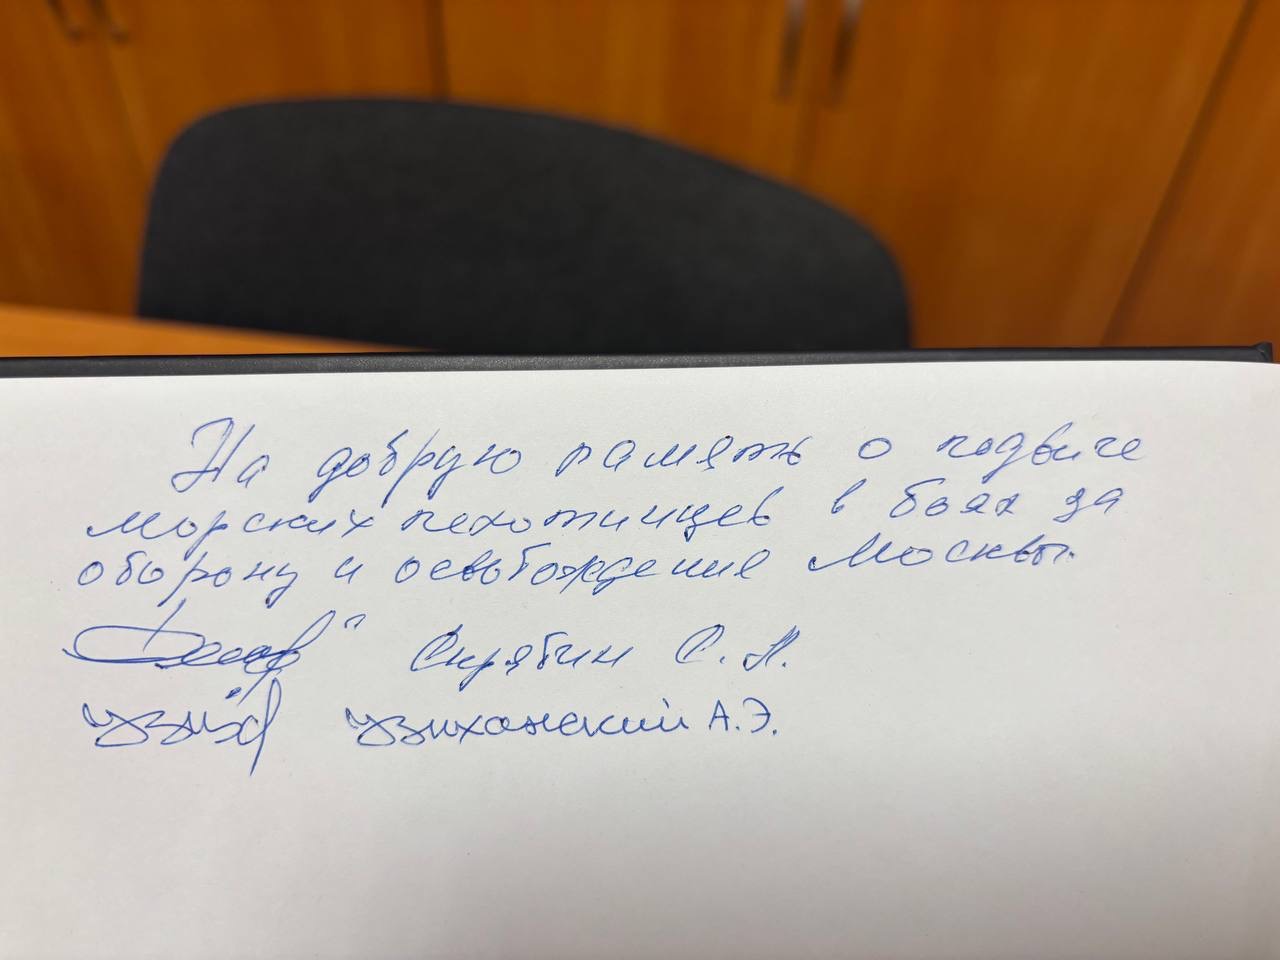 На добрую память о подвиге
морских пехотинцев в боях за
оборону и освобождение Москвы.
Скрябин С. Н.
Узиханский А.Э.